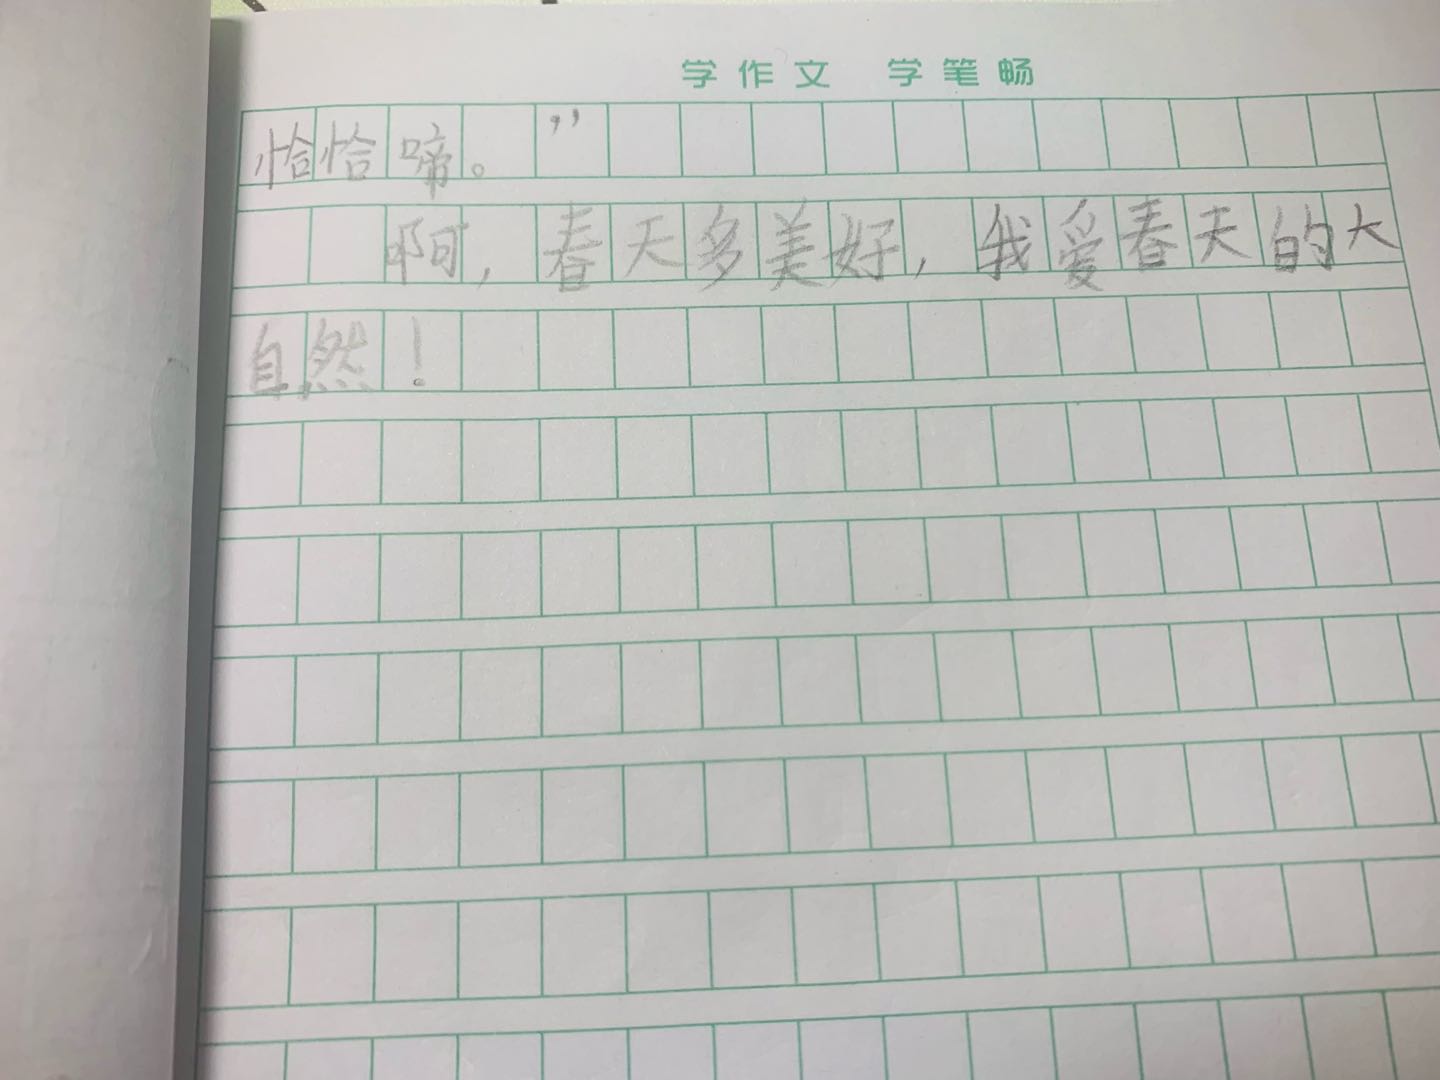 学作文 学笔畅
恰恰啼。”
啊，春天多美好，我爱春天的大
自然！